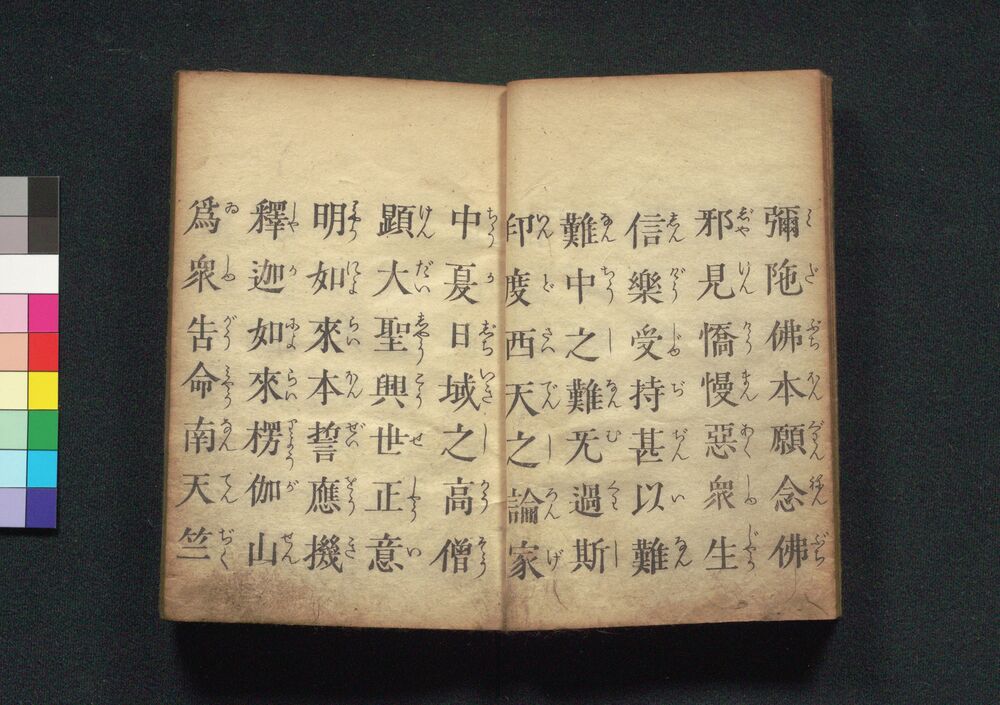 彌陁佛本願念佛
邪見憍慢惡衆生
信樂受持甚以難
難中之難无過斯
印度西天之論家
中夏日域之高僧
顕大聖興世正意
明如來本誓應機
釋迦如來楞伽山
爲衆告命南天竺